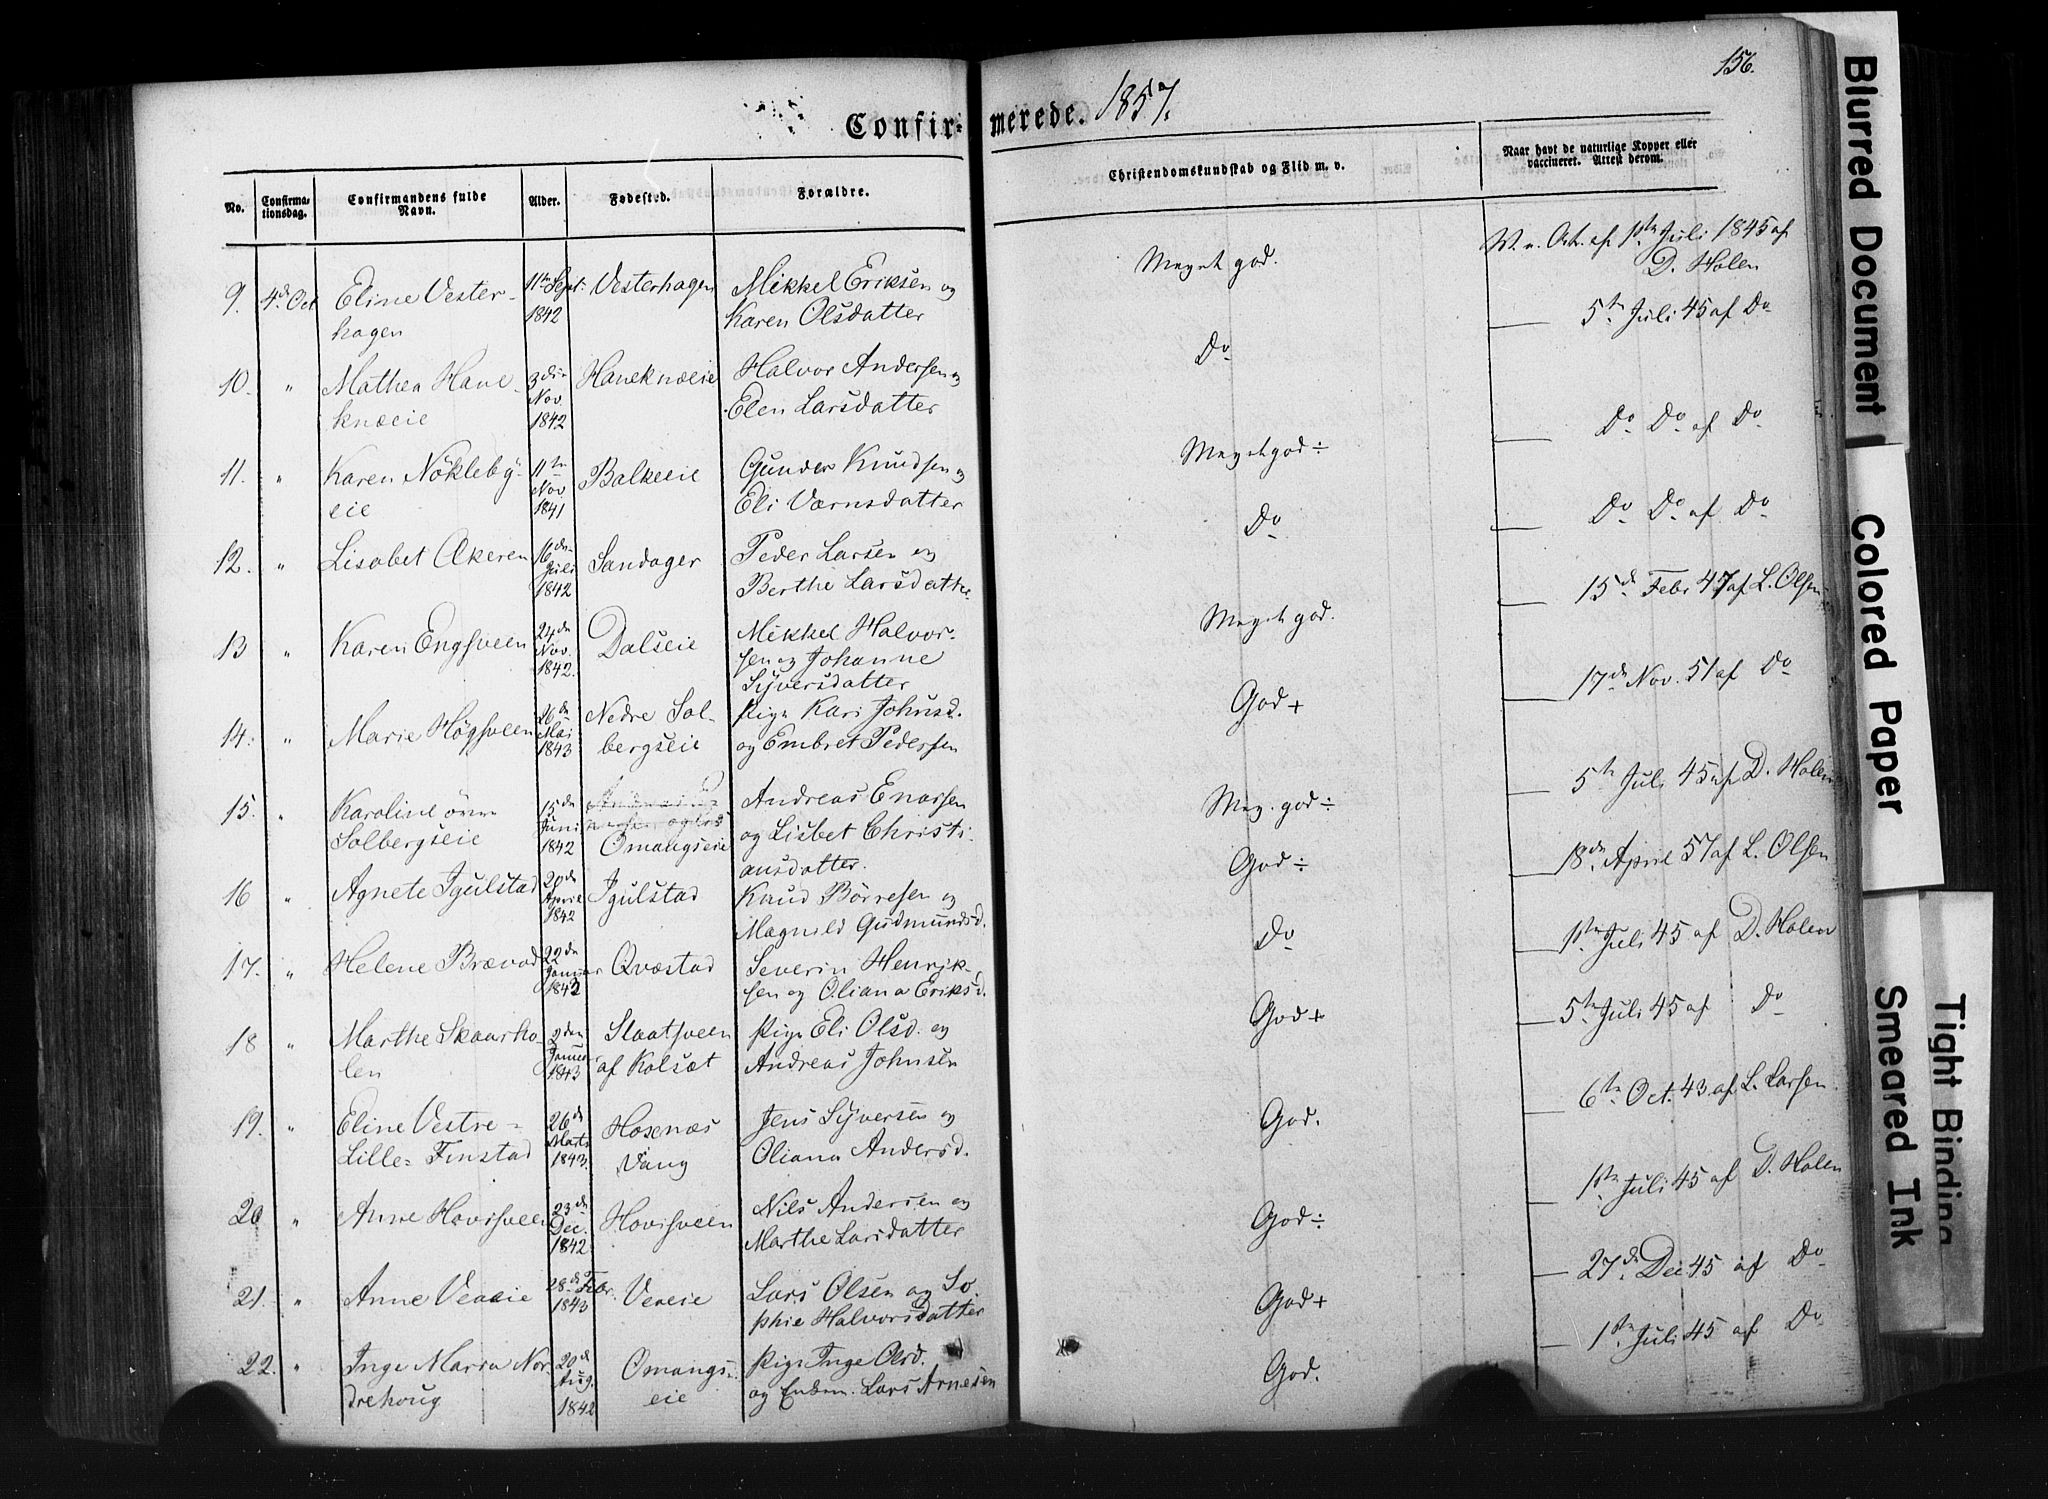 156.
Confirmerede. 1857.
No. Confirmationsdag. Confirmandens fulde Navn. Alder. Fødested. Forældre. Christendomskundskab og Flid m. v. Naar havt de naturlige Kopper eller vaccineret. Attest derom.
9. 4de Oct Eline Vester- 11te Sept: Vesterhagen Mikkel Eriksen og Meget god. 1ste Juli 1845 af
hagen 1842 Karen Olsdatter D. Holen
10. " Mathea Hane- 3die Haneknæeie Halvor Andersen og Do 5te Juli 45 af Do
knæeie Nov. 1842 Elen Larsdatter
11. " Karen Nökleby- 11te Balkeeie Gunder Knudsen og Meget god ÷ Do Do af Do
eie Nov. 1841 Eli Værnsdatter
12. " Lisabet Akeren 16de Sandager Peder Larsen og Do Do Do af Do
Juli 1842 Berthe Larsdatter
13 " Karen Engsveen 24de Dalseie Mikkel Halvor- Meget god. 15de Febr 47 af L. Olsen
Nov. 1842. sen og Johanne
Syversdatter
14. " Marie Høgsveen 26de Nedre Sol- Pige Kari Johnsd. God + 17de Nov. 51 af Do
Mai 1843 bergseie og Embret Pedersen
15. " Karoline övre 15de Andreas Enarsen Meg. god ÷ 5te Juli 45 af D. Holen
Solbergseie Juni 1842 Omangseie og Lisbet Christi-
ansdatter.
16 " Agnete Igulstad 20de Igulstad Knud Börresen og God ÷ 18de April 57 af L. Olsen
April 1842 Magnild Gudmundsd.
17. " Helene Brævad 22de Qvæstad Severin Henrik- Do 1ste Juli 45 af D. Holen
Januar 1843 sen og Oliana Eriksd.
18 " Marthe Skaarho- 2den Slaatsveen Pige Eli Olsd. og God + 5te Juli 45 af Do
len Januar 1843 af Kolsæt Andreas Johnsen
19. " Eline Vestre- 26de Hosenæs Jens Syversen og God. 6te Oct. 43 af L. Larsen
Lille-Finstad Marts 1843. Vang Oliana Andersd.
20 " Anne Hovisveen 23de Hovisveen Nils Andersen og God ÷ 1ste Juli 45 af D. Holen
Dec. 1842 Marthe Larsdatter
21. " Anne Veneie 28de Febr. Veneie Lars Olsen og So- God + 27de Dec 45 af Do
1843 phie Halvorsdatter
22. " Inge Maria Nor- 20de Omangs- Pige Inge Olsd. God. 1ste Juli 45 af Do
drehoug Aug. 1842 eie og Enkm. Lars Arnesen
Blurred Document
Colored Paper
Tight Binding
Smeared Ink